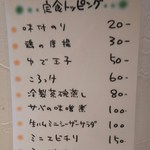 定食トッピング
味付のり 20-
鶏の唐揚 30-
ゆで玉子 50-
ころっけ 60-
冷製茶碗蒸し 80-
サバの味噌煮 100-
生ハムミニシーザーサラダ 100
ミニエビチリ